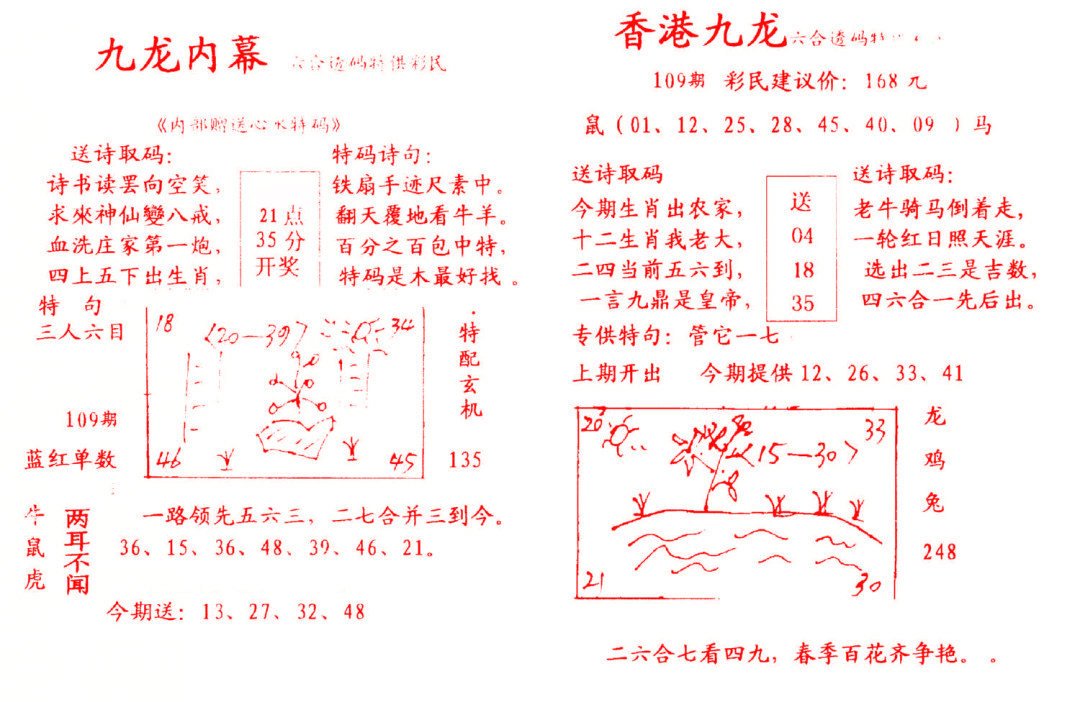 九龙内幕 六合透码特供彩民
《内部赠送心水特码》
送诗取码：
诗书读罢向空笑，
求來神仙變八戒，
血洗庄家第一炮，
四上五下出生肖，
21点
35分
开奖
特码诗句：
铁扇手迹尺素中。
翻天覆地看牛羊。
百分之百包中特，
特码是木最好找。
特 句
三人六目
109期
蓝红单数
18
〈20—39〉
34
46
45
特配玄机
135
牛
鼠
虎
两耳不闻
一路领先五六三，二七合并三到今。
36、15、36、48、39、46、21。
今期送：13、27、32、48
香港九龙 六合透码特
109期 彩民建议价：168 元
鼠（01、12、25、28、45、40、09 ）马
送诗取码
今期生肖出农家，
十二生肖我老大，
二四当前五六到，
一言九鼎是皇帝，
送
04
18
35
送诗取码：
老牛骑马倒着走，
一轮红日照天涯。
选出二三是吉数，
四六合一先后出。
专供特句：管它一七
上期开出 今期提供 12、26、33、41
20
33
〈15—30〉
21
30
龙
鸡
兔
248
二六合七看四九，春季百花齐争艳。。